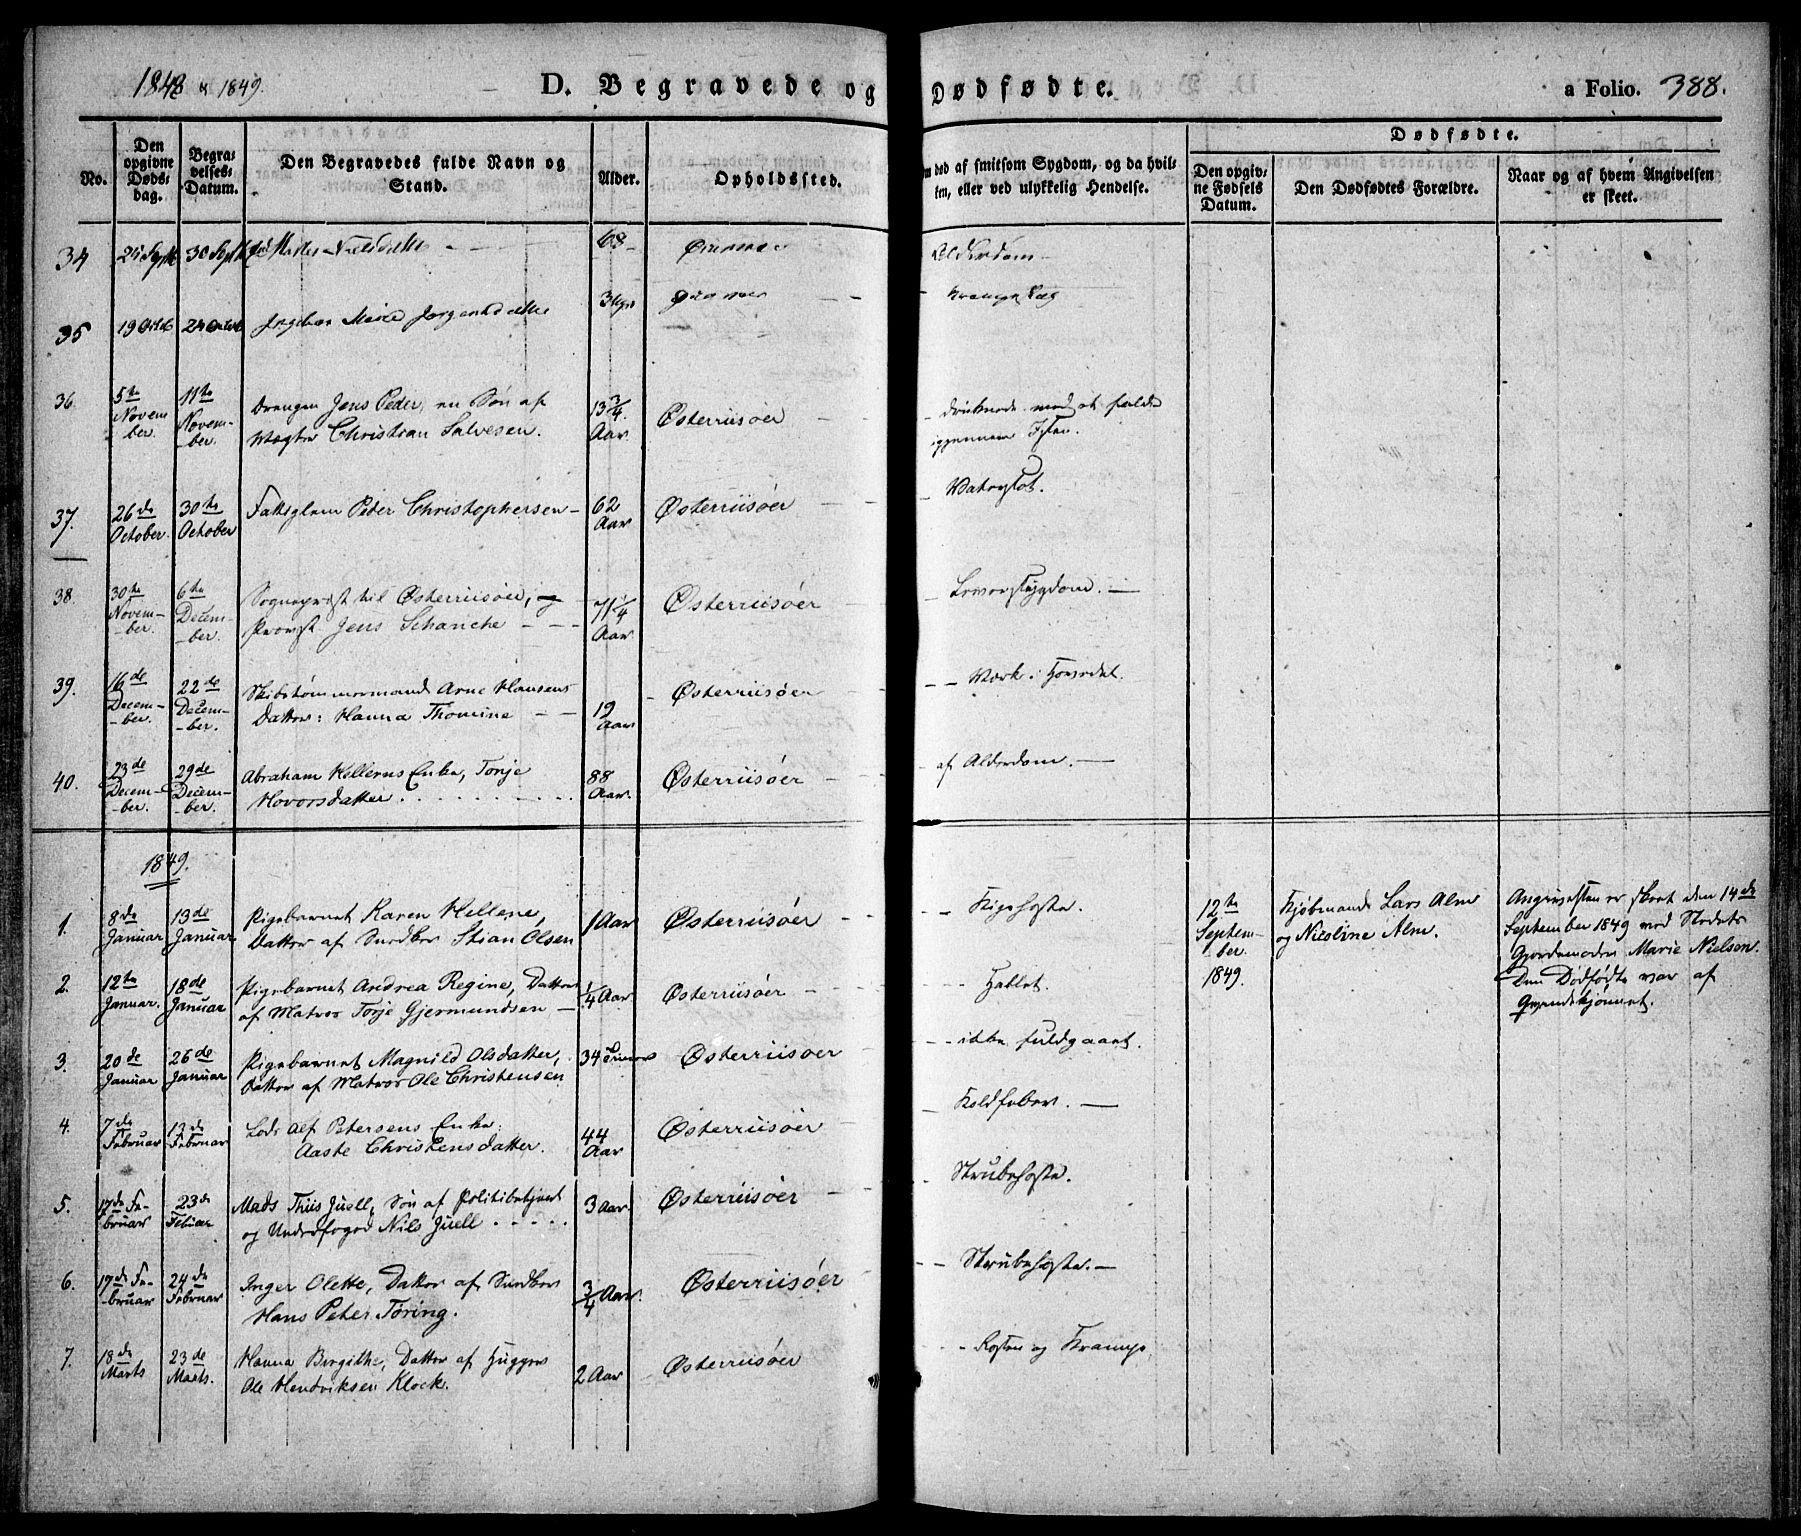 1848 & 1849.
D. Begravede og Dødfødte.
a Folio. 388.
No.
Den opgivne Døds-dag.
Begra-velses-Datum.
Den Begravedes fulde Navn og Stand.
Alder.
Opholdssted.
m død af smitsom Sygdom, og da hvil-
ken, eller ved ulykkelig Hendelse.
Dødfødte.
Den opgiv-ne Fødsels Datum.
Den Dødfødtes Forældre.
Naar og af hvem Angivelsen er skeet.
34 24 Sept 30 Sept Nielsdatter 68 Alderdom
35 19 Octob 24 Octob Ingebor Marie Jørgensdatter
36. 5te Novem-ber. 11te Novem-ber. Drengen Jens Peder, en Søn af
Vægter Christian Salvesen. 13 3/4 Aar Østerriisøer druknede ved at falde
igjennem Isen.
37. 26de October. 30te October Fattiglem Peder Christophersen 62 Aar Østerriisøer Vatersot.
38. 30te Novem-ber. 6te Decem-ber. Sognepræst til Østerriisøer, og
Provst Jens Schanche 71 1/4 Aar Østerriisøer Leversygdom.
39. 16de Decem-ber. 22de Decem-ber. Skibstømmermand Arne Hansens
Datter: Hanna Thomine 19 Aar Østerriisøer Værk i Hovedet.
40. 23de Decem-ber. 29de Decem-ber. Abraham Kellerns Enke, Tonje
Hovorsdatter. 88 Aar. Østerriisøer af Alderdom.
1849.
1. 8de Januar 13de Januar Pigebarnet Karen Hellene,
Datter af Snedker Stian Olsen 1 Aar Østerriisøer Kighoste.
12te September. 1849. Kjøbmand Lars Alm
og Nicoline Alm.
Angivelsen er skeet den 14de
September 1849 ved Stedets
Gjordemoder Marie Nielsen.
Den Dødfødte var af
Qvindekjønnet.
2. 12te Januar. 18de Januar Pigebarnet Andrea Regine, Datter
af Matros Torje Gjermundsen 1/4 Aar Østerriisøer
3. 20de Januar 26de Januar Pigebarnet Magnild Olsdatter,
Datter af Matros Ole Christensen 34 Timers Østerriisøer ikke fuldgaaet.
4. 7de Februar 13de Februar Lods Alf Petersens Enke:
Aaste Christensdatter. 44 Aar Østerriisøer Koldfeber.
5. 17de Fe-bruar 23de Februar Mads Thiis Juell, Søn af Politibetjent
og Underfoged Nils Juell 3 Aar. Østerriisøer Strubehoste.
6. 17de Fe-bruar 24de Februar Inger Olette, Datter af Snedker
Hans Peter Tøring. 3/4 Aar. Østerriisøer Strubehoste.
7. 18de Marts 23de Marts. Hanna Birgithe, Datter af Hugger
Ole Hendriksen Klock. 2 Aar Østerriisøer og Krampe.